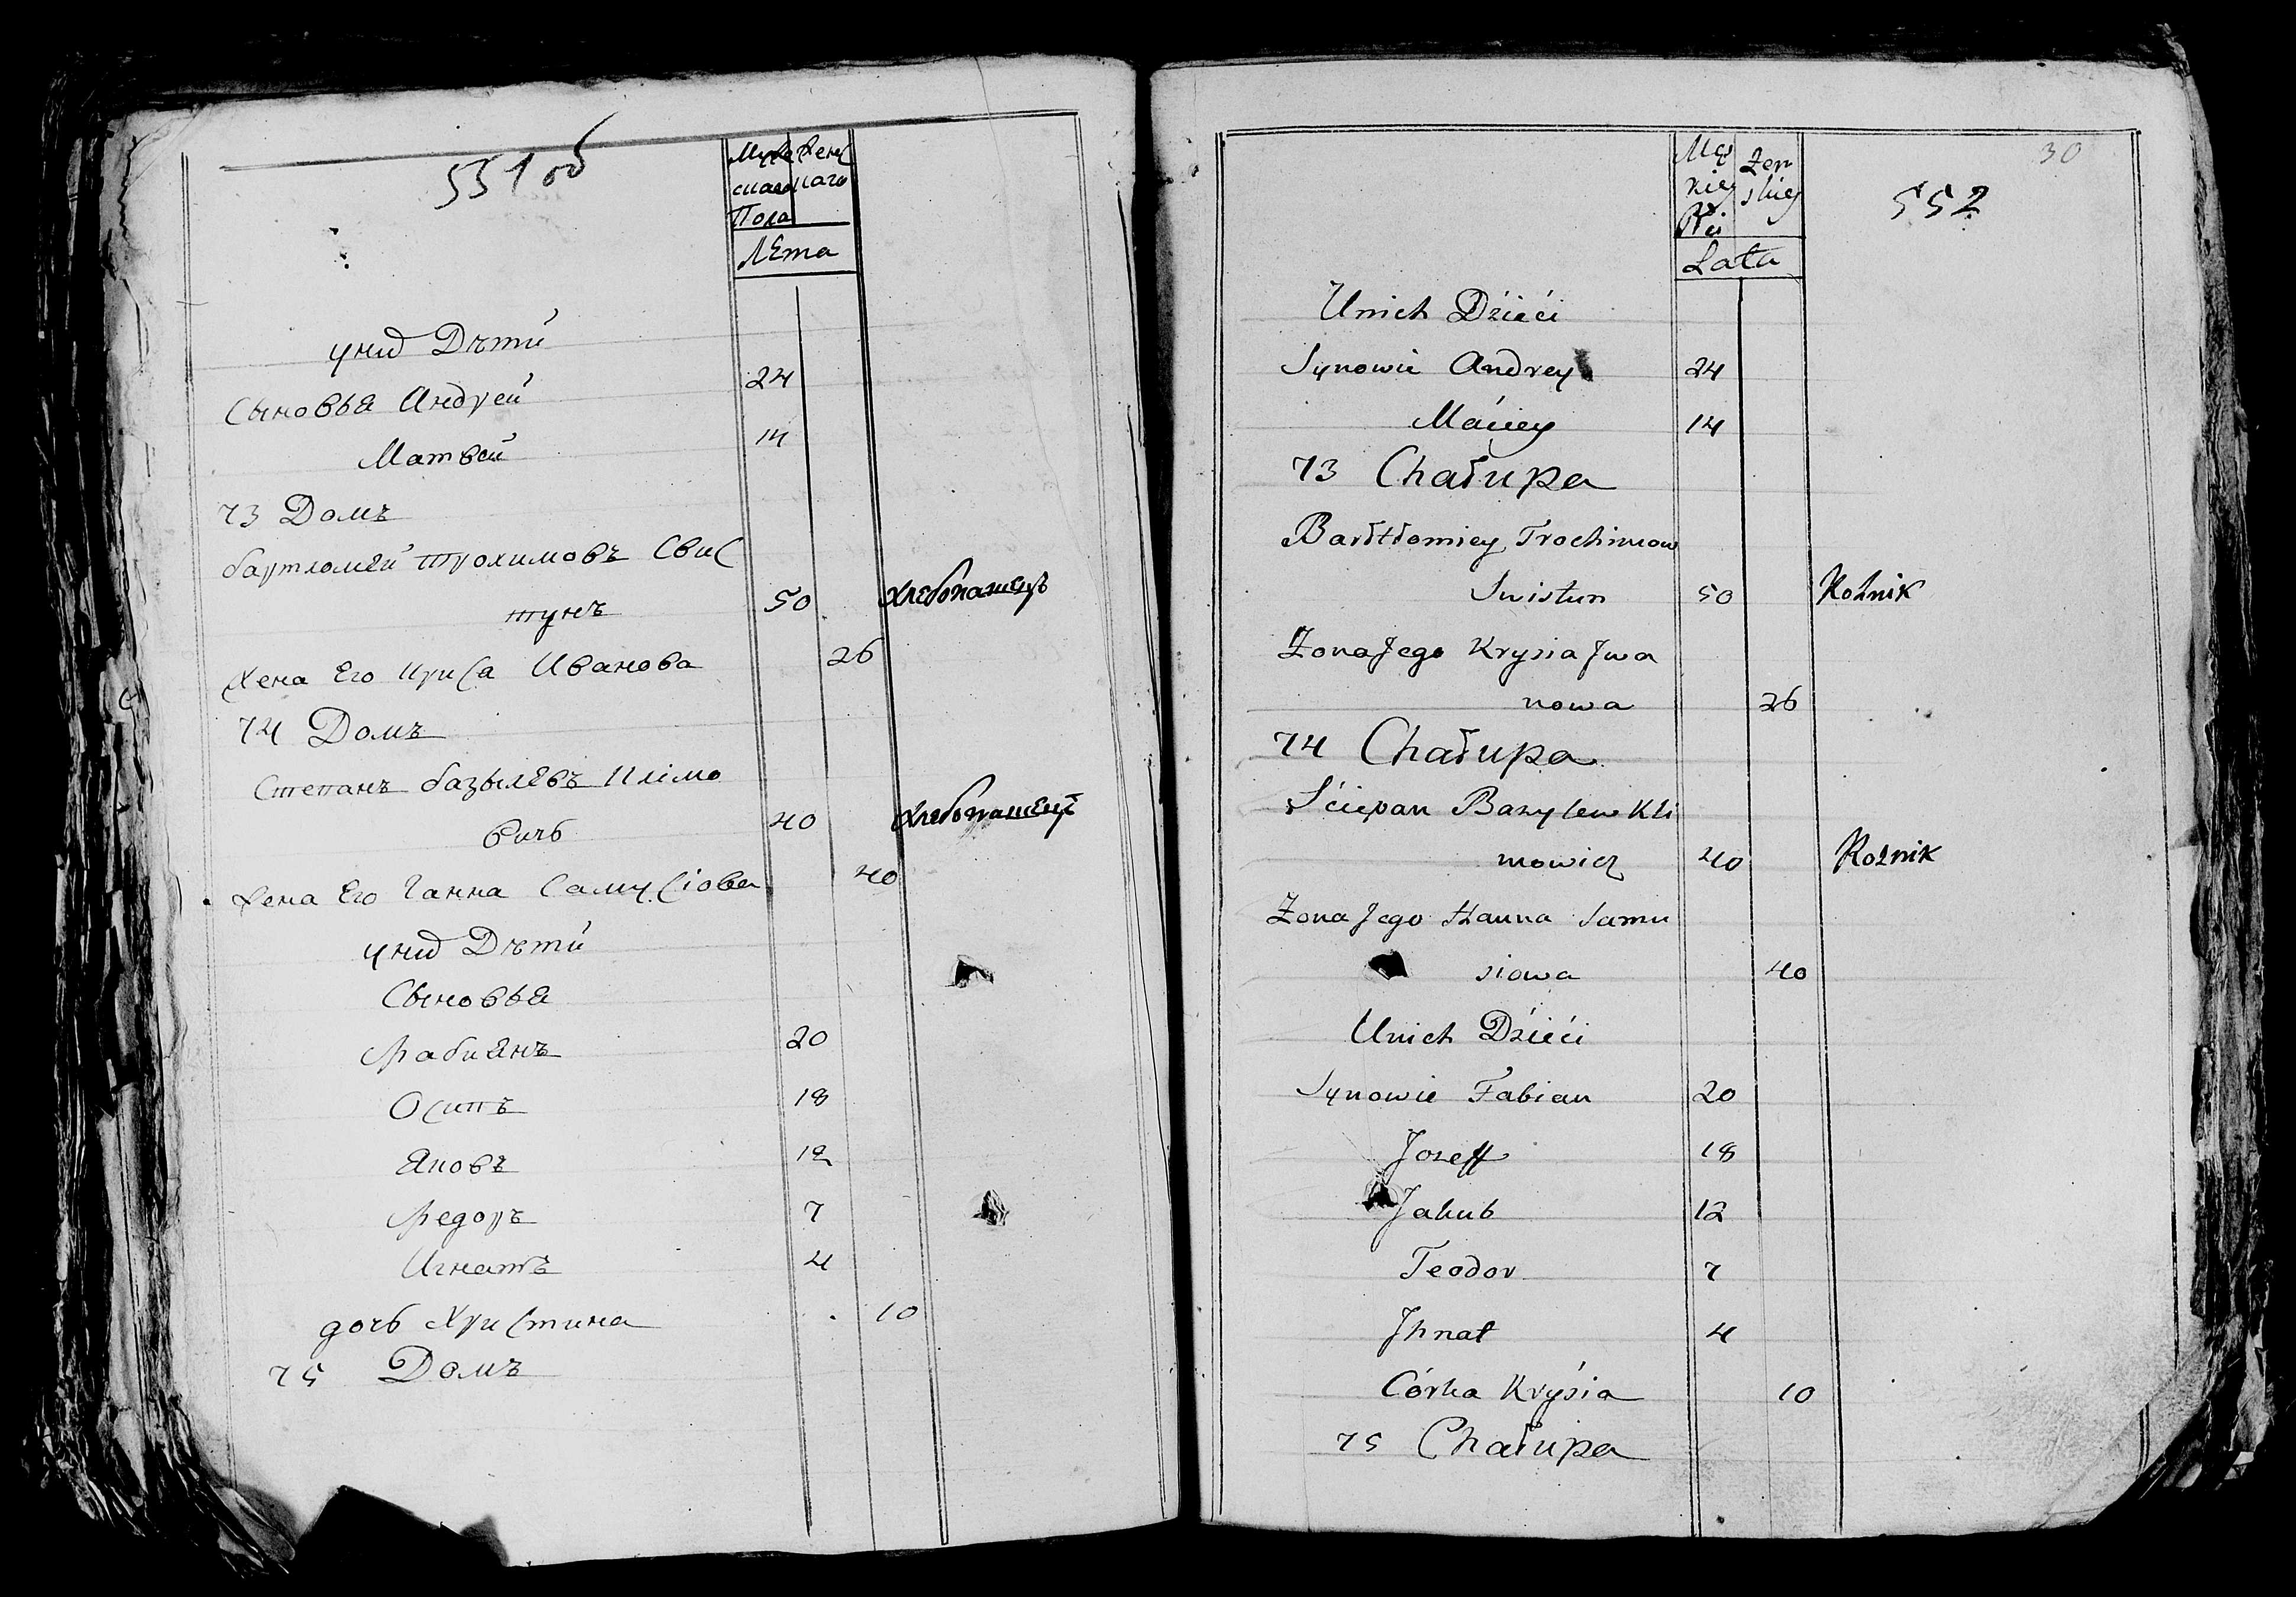 551 об
Муже Женс
скаго каго
Пола
Лета
уних Дети
Сыновья Андрей 24
Матвей 14
73 Домъ
бартломей трохимовъ Свис
тунъ 50 хлебопашецъ
Жена Его Крися Иванова 26
74 Домъ
Степанъ базылевъ Климо
вичь 40 хлебопашецъ
Жена Его Ганна Самусiова 40
уних Дети
Сыновья
Фабиянъ 20
Осипъ 18
Яковъ 12
Федоръ 7
Игнатъ 4
дочь Христина 10
75 Домъ
30
552
Męz Żen
kiey skiey
Płci
Lata
Unich Dzieci
Synowie Andrey 24
Maciey 14
73 Chałupa
Bartłomiey Trochimow
Swistun 50 Rolnik
Zona Jego Krysia Jwa
nowa 26
74 Chałupa
Sciepan Bazylew Kli
mowicz 40 Rolnik
Zona Jego Hanna Samu
siowa 40
Unich Dzieci
Synowie Fabian 20
Jozeff 18
Jakub 12
Teodor 7
Jhnat 4
Córka Krysia 10
75 Chałupa